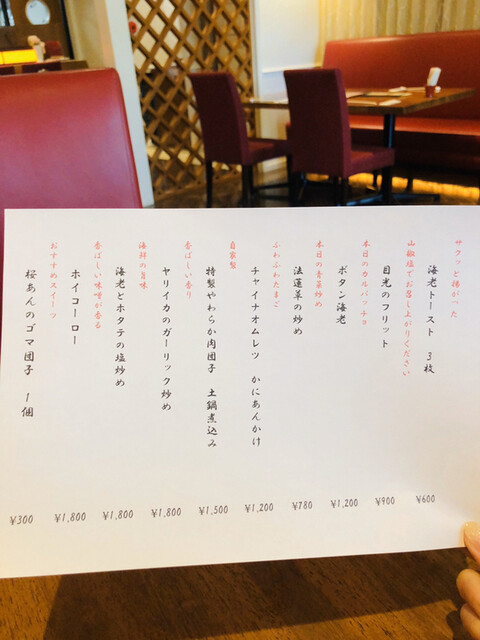 サクッと揚がった
海老トースト 3枚
¥600
山椒塩でお召し上がりください
目光のフリット
¥900
本日のカルパッチョ
ボタン海老
¥1,200
本日の青菜炒め
法蓮草の炒め
¥780
ふわふわたまご
チャイナオムレツ かにあんかけ
¥1,200
自家製
特製やわらか肉団子 土鍋煮込み
¥1,500
香ばしい香り
ヤリイカのガーリック炒め
¥1,800
海鮮の旨味
海老とホタテの塩炒め
¥1,800
香ばしい味噌が香る
ホイコーロー
¥1,800
おすすめスイーツ
桜あんのゴマ団子 1個
¥300